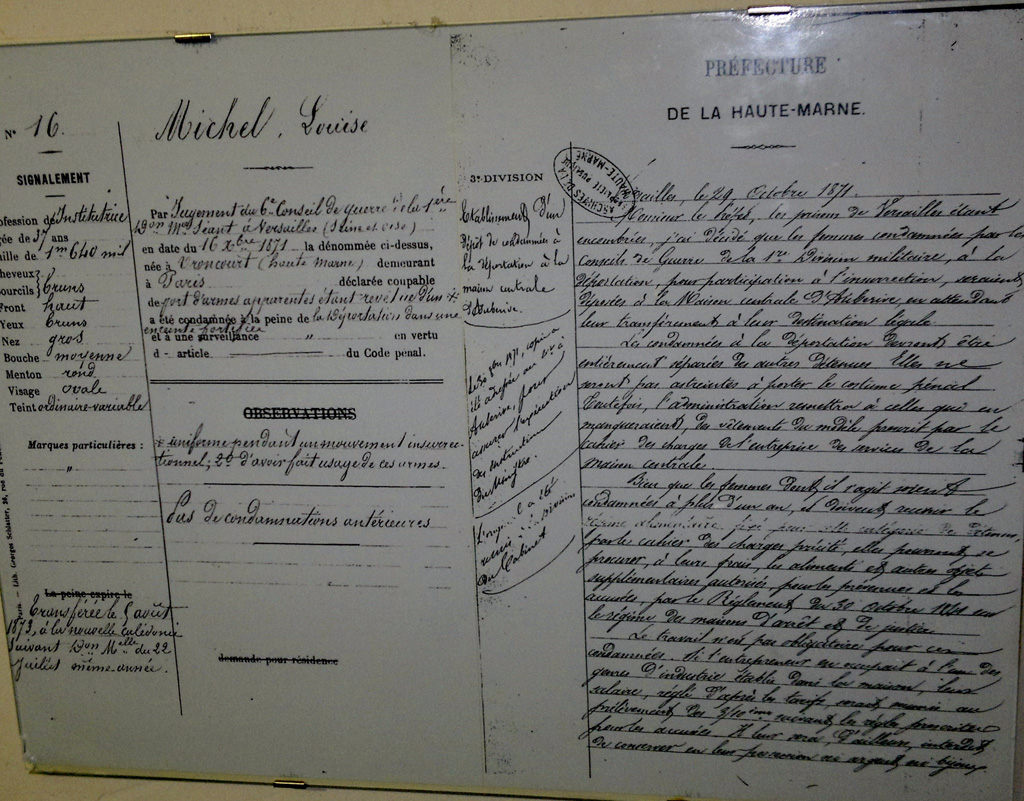 N° 16.
SIGNALEMENT
ofession d'Institutrice
gée de 37 ans
aille de 1m 640 mil
heveux
ourcils } bruns
Front haut
Yeux bruns
Nez gros
Bouche moyenne
Menton rond
Visage ovale
Teint ordinaire-variable
Marques particulières :
"
La peine expire le
transférée le 5 août
1873, à la nouvelle calédonie
suivant Don Mlle du 22
Juillet même année.
Paris — Lith. Georges Schlaeter
Michel, Louise
Par Jugement du 6e Conseil de guerre de la 1ère
Don Mre Séant à Versailles (Seine et oise)
en date du 16 Xbre 1871 la dénommée ci-dessus,
née à Vroncourt (haute Marne) demeurant
à Paris déclarée coupable
de port d'armes apparentes étant revêtue d'un *
a été condamnée à la peine de la Déportation dans une
enceinte fortifiée
et à une surveillance " en vertu
d - article. du Code pénal.
OBSERVATIONS
* uniforme pendant un mouvement insurrec-
tionnel; 2° d'avoir fait usage de ces armes.
Pas de condamnations antérieures
demande pour résidence
3e DIVISION
Etablissement d'un
dépôt de condamnées à
la déportation à la
maison centrale
d'Auberive.
L'original a été
remis à la Division
du Cabinet
PRÉFECTURE
DE LA HAUTE-MARNE.
ARCHIVES DE LA HAUTE-MARNE
Versailles, le 29 Octobre 1871.
Monsieur le Préfet, les prisons de Versailles étant
encombrées, j'ai décidé que les femmes condamnées par les
Conseils de Guerre de la 1re Division militaire, à la
Déportation, pour participation à l'insurrection, seraient
déposées à la Maison centrale d'Auberive, en attendant
leur transfèrement à leur destination légale.
Les condamnées à la Déportation devront être
entièrement séparées des autres détenues. Elles ne
seront pas astreintes à porter le costume pénal
Toutefois, l'administration remettra à celles qui en
manqueraient, des vêtements du modèle prescrit par le
cahier des charges de l'entreprise des services de la
maison centrale.
Bien que les femmes dont il s'agit soient
condamnées à plus d'un an, et doivent recevoir le
régime alimentaire fixé pour cette catégorie de détenues,
par le cahier des charges précité, elles pourront se
procurer, à leurs frais, les aliments et autres objets
supplémentaires autorisés pour les prévenues et les
accusées, par le Règlement du 30 octobre 1841 sur
le régime des maisons d'arrêt et de justice.
Le travail n'est pas obligatoire pour ces
condamnées. Si l'entrepreneur en occupait à l'un des
genres d'industrie établis dans la maison, leur
salaire, réglé d'après les tarifs serait soumis au
prélèvement des 3/10èmes suivant les règles prescrites
pour les accusées. Il leur sera, d'ailleurs, interdit
de conserver en leur possession ni argent, ni bijoux